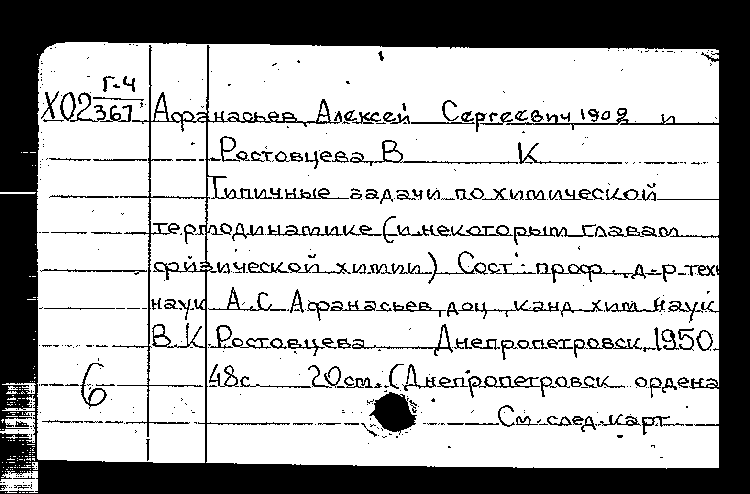 Г-4
Х02 367 Афанасьев, Алексей Сергеевич, 1902 и
Ростовцева, В К
Типичные задачи по химической
термодинамике (и некоторым главам
физической химии) Сост. проф. д-р техн
наук А.С Афанасьев, доц, канд хим наук
В.К. Ростовцева. Днепропетровск, 1950
48с. 20см. (Днепропетровск ордена
6
См. след. карт